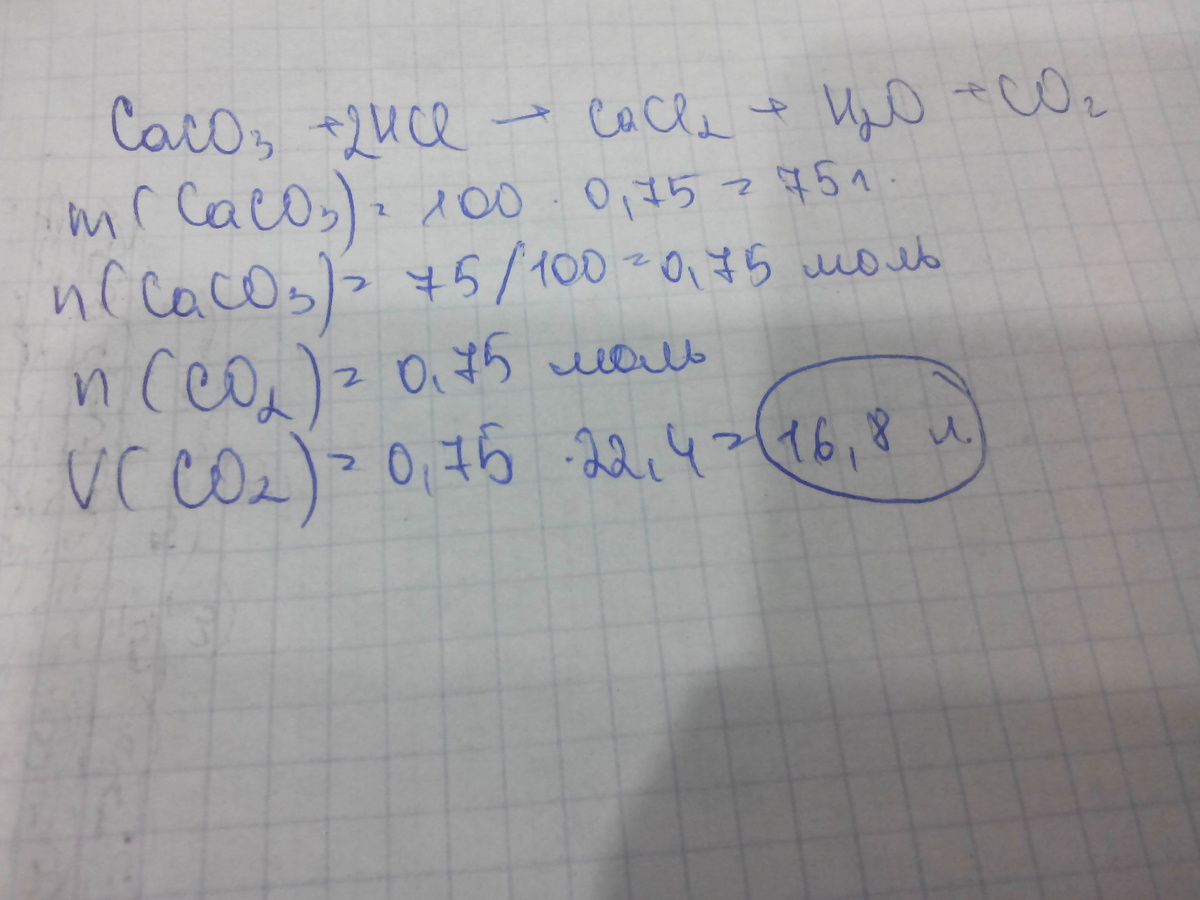 CaCO₃ + 2HCl → CaCl₂ + H₂O + CO₂
m(CaCO₃) = 100 · 0,75 = 75 г.
n(CaCO₃) = 75/100 = 0,75 моль
n(CO₂) = 0,75 моль
V(CO₂) = 0,75 · 22,4 = 16,8 л.